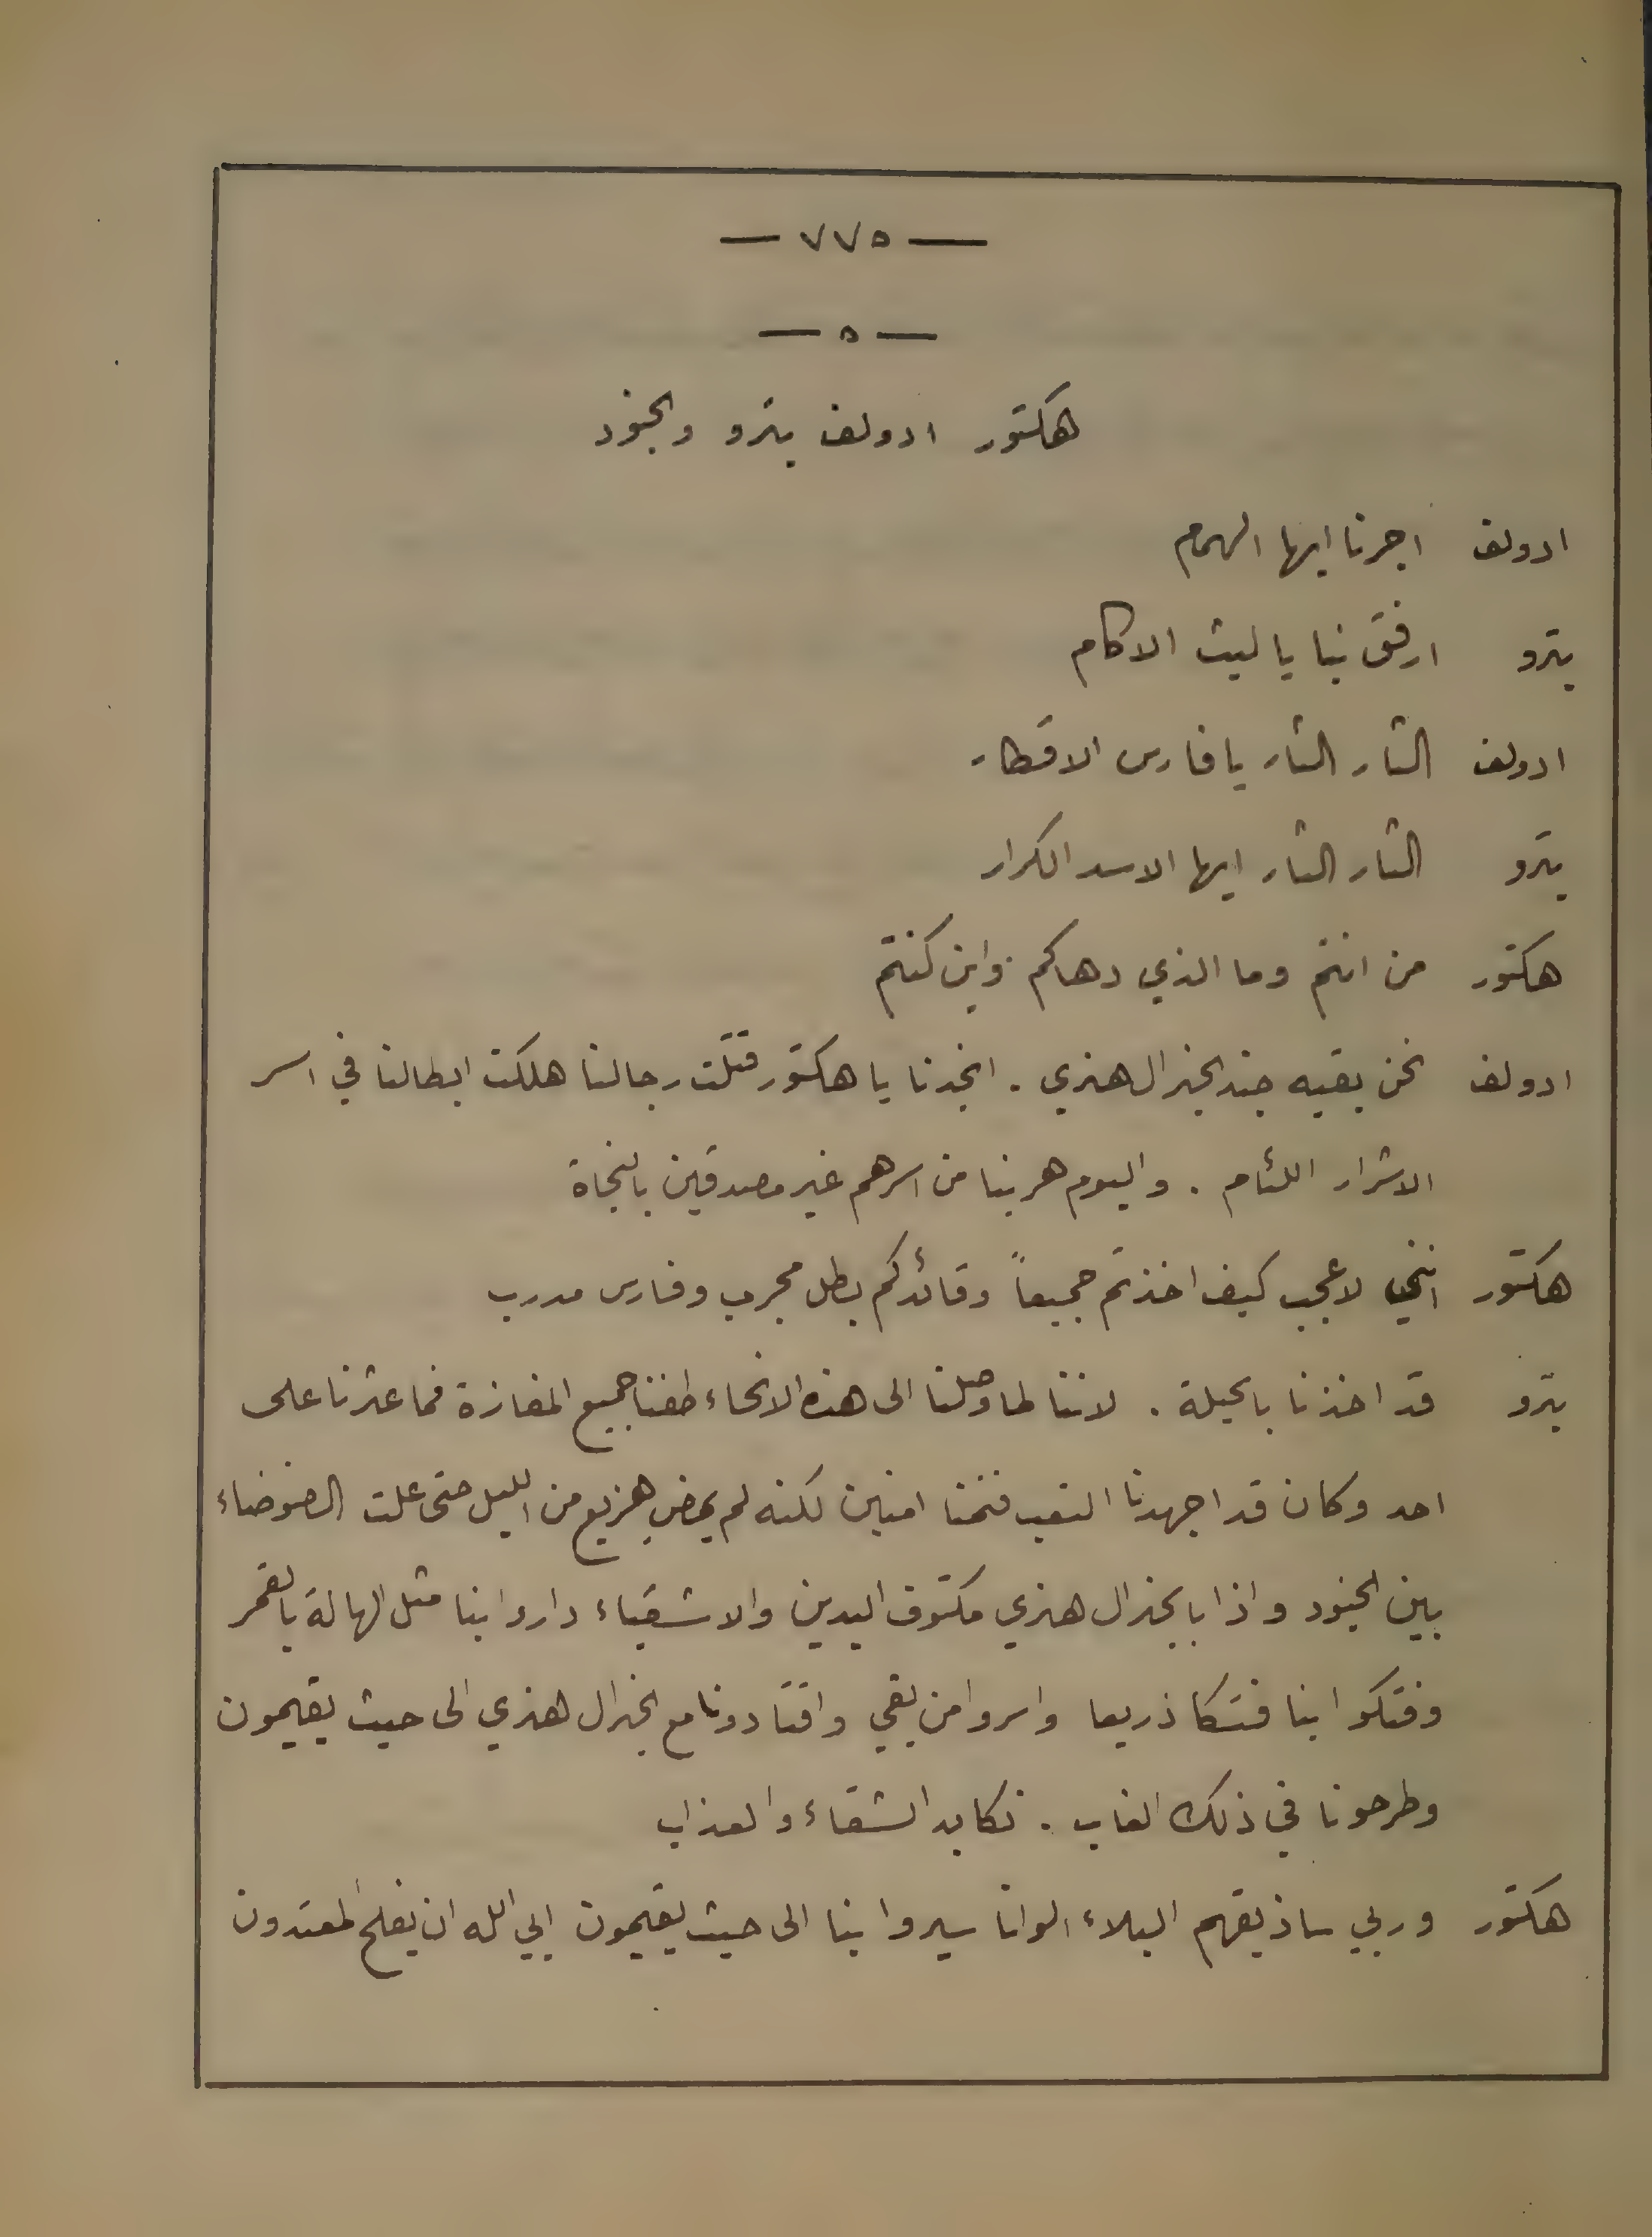 — ٧٧٥ —
— ٥ —
هكتور ادولف بترو والجنود
ادولف اجرنا ايها الهمام
بترو ارفق بنا يا ليث الاكام
ادولف الثار الثار يا فارس الاقطار
بترو الثار الثار ايها الاسد الكرار
هكتور من انتم وما الذي دهاكم واين كنتم
ادولف نحن بقيه جند الجنرال هنري . انجدنا يا هكتور قتلت رجالنا هلكت ابطالنا في اسر
الاشرار اللئام . واليوم هربنا من اسرهم غير مصدقين بالنجاة
هكتور انني لاعجب كيف اخذتم جميعاً وقائدكم بطل مجرب وفارس مدرب
بترو قد اخذنا بالحيلة . لاننا لما وصلنا الى هذه الانحاء طفنا جميع المغازة فما عثرنا على
احد وكان قد اجهدنا التعب فنمنا امنين لكنه لم يمض هزيع من الليل حتى علت الضوضاء
بين الجنود واذا بالجنرال هنري مكتوف اليدين والاشقياء داروا بنا مثل الهالة بالقمر
وفتكوا بنا فتكا ذريعا واسروا من بقي واقتادونا مع الجنرال هنري الى حيث يقيمون
وطرحونا في ذلك الغاب . نكابد الشقاء والعذاب
هكتور وربي ساذيقهم البلاء الوانا سيروا بنا الى حيث يقيمون ابي الله ان يفلح المعتدون